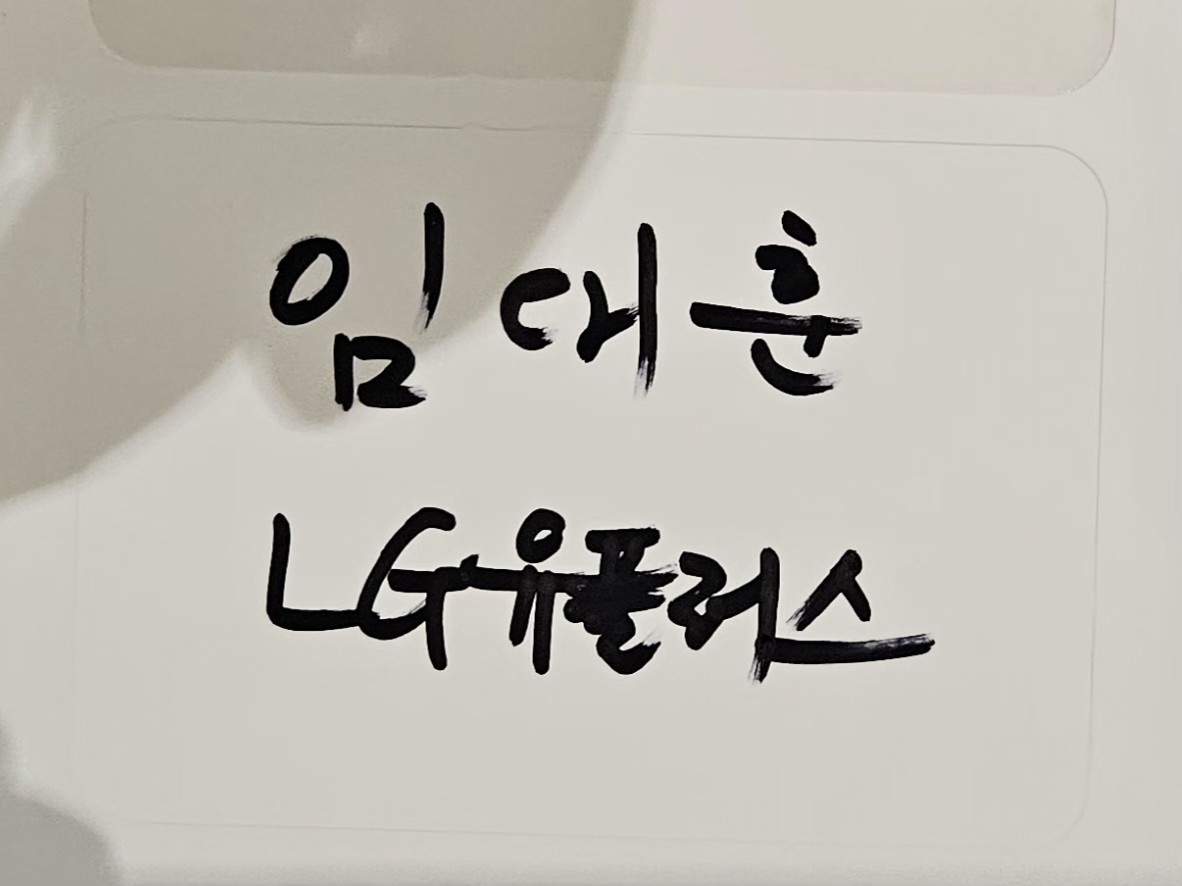 임대훈
LG유플러스